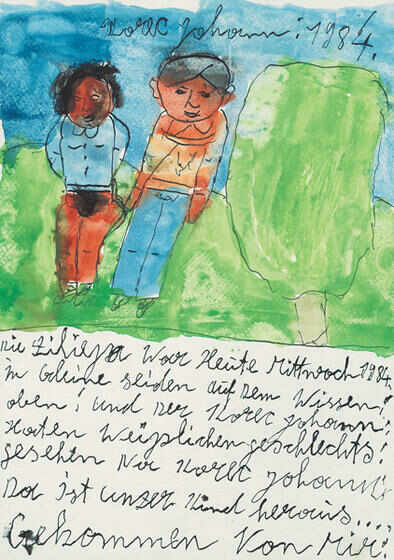 Korec Johann: 1984.
Die Ziliepa War Heute Mittwoch 1984.
in Gleine seiden auf Dem Wissen!
oben! und Der Korec Johann:
Haten Weiplichen geschlechts!
gesehen Nur Korec Johann!
Da ist unser Kind heraus....
Gekommen Von Mir!